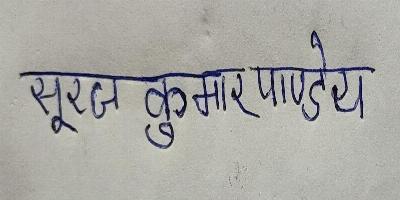 सूरज कुमार पाण्डेय